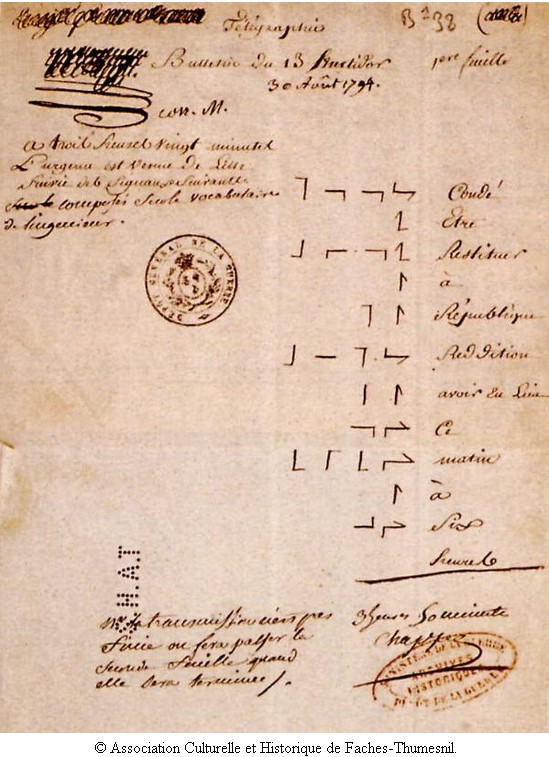 Télégraphie
Bulletin du 13 fructidor
30 Août 1794.
1ere feuille
con. M.
a trois heures vingt minutes
L'urgence est venue de Lille
Suivie des Signaux Suivants
composés Sur le vocabulaire
de l'ingénieur.
DÉPÔT GÉNÉRAL DE LA GUERRE
Condé
Etre
Restituer
à
République
Reddition
avoir eu Lieu
Ce
matin
à
Six
heures
S.H.A.T
3 heures
Chappe
finie on fera passer la
Seconde feuille quand
elle sera terminée
MINISTÈRE DE LA GUERRE
ARCHIVES
HISTORIQUES
DÉPÔT DE LA GUERRE
© Association Culturelle et Historique de Faches-Thumesnil.